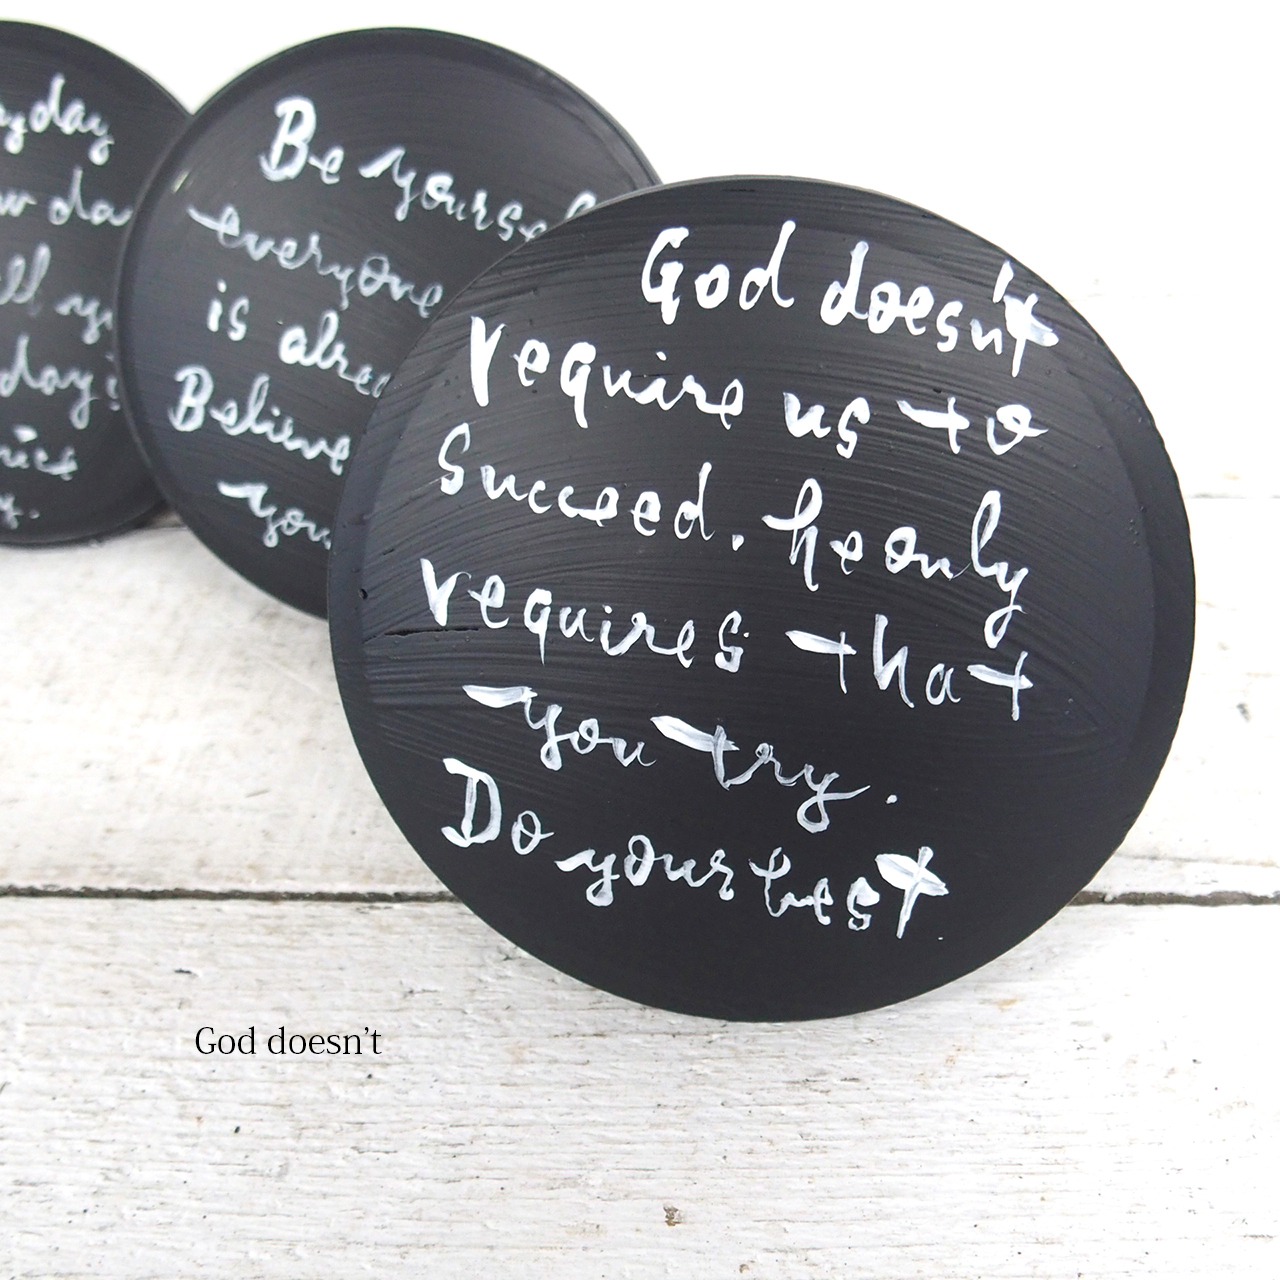 day
w da
ll
day
Be yourse
everyone
is alrea
Believe
you
God doesn't
require us to
succeed. he only
requires that
you try.
Do your best.
God doesn't